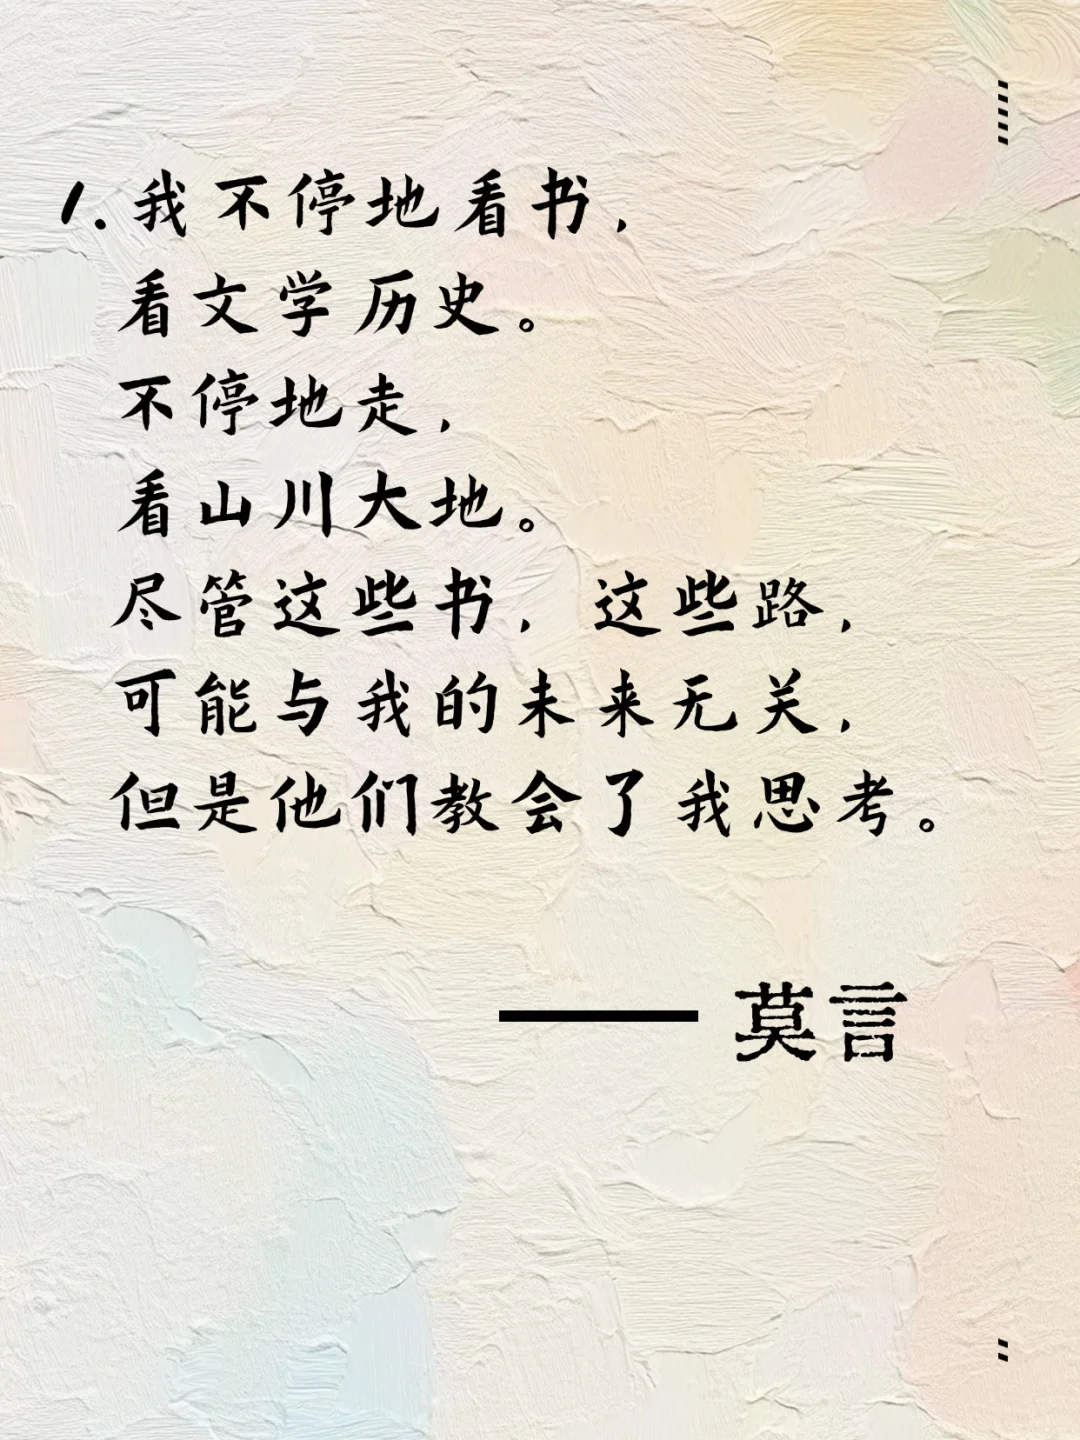 1.我不停地看书，
看文学历史。
不停地走，
看山川大地。
尽管这些书，这些路，
可能与我的未来无关，
但是他们教会了我思考。
——莫言